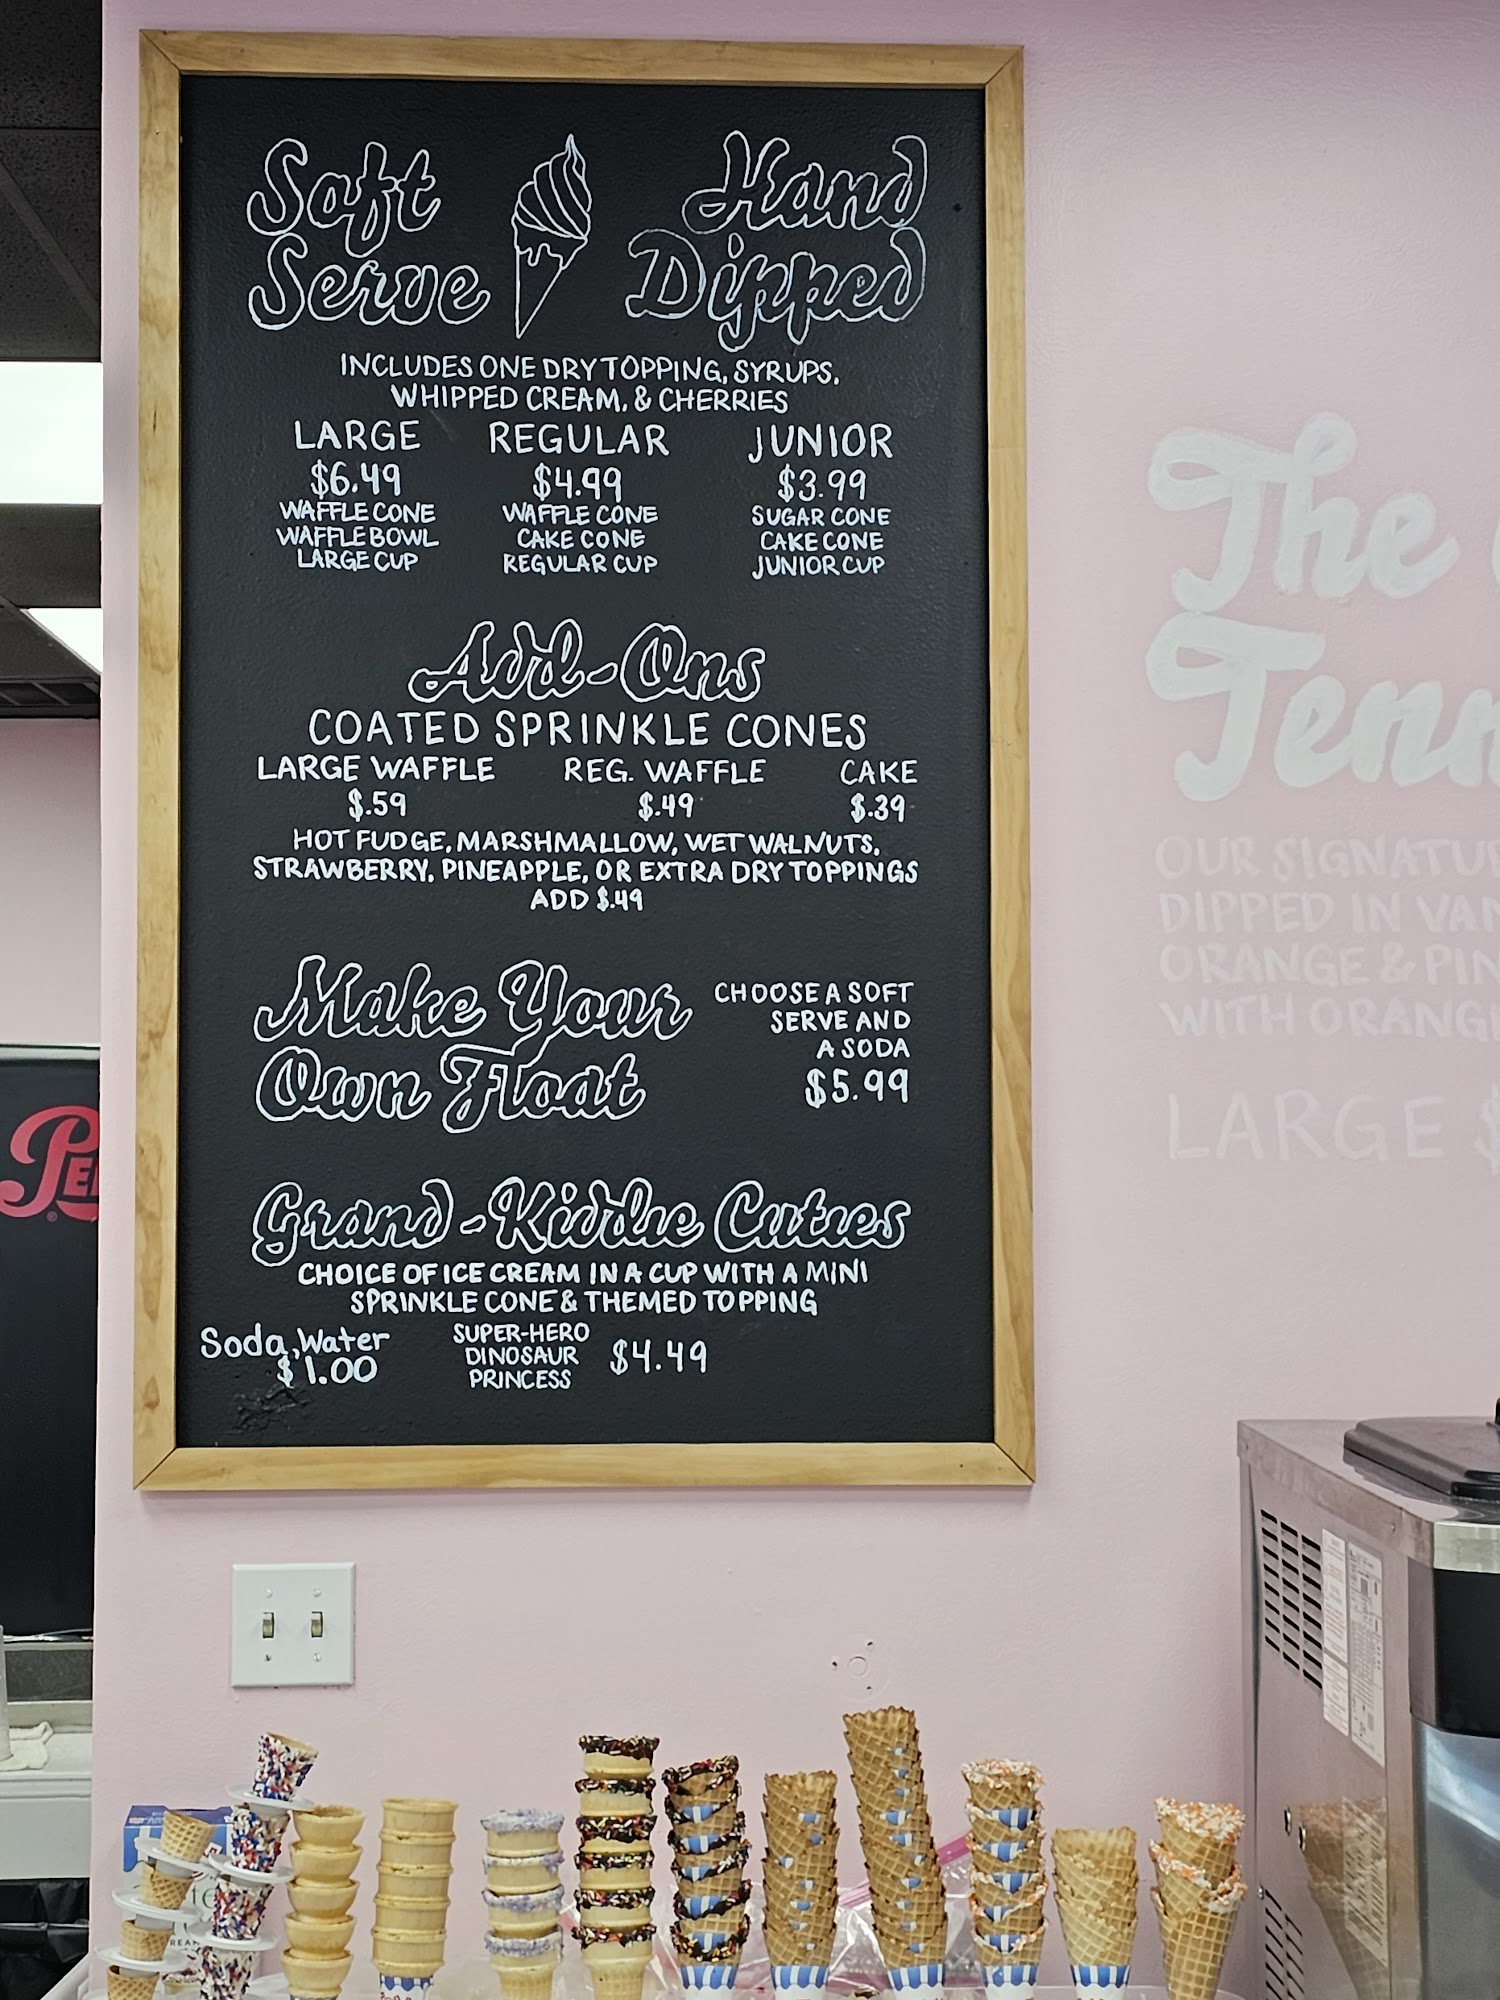 Soft
Serve
Hand
Dipped
INCLUDES ONE DRY TOPPING, SYRUPS,
WHIPPED CREAM, & CHERRIES
LARGE REGULAR JUNIOR
$6.49 $4.99 $3.99
WAFFLE CONE WAFFLE CONE SUGAR CONE
WAFFLE BOWL CAKE CONE CAKE CONE
LARGE CUP REGULAR CUP JUNIOR CUP
Add-Ons
COATED SPRINKLE CONES
LARGE WAFFLE REG. WAFFLE CAKE
$.59 $.49 $.39
HOT FUDGE, MARSHMALLOW, WET WALNUTS,
STRAWBERRY, PINEAPPLE, OR EXTRA DRY TOPPINGS
ADD $.49
Make Your
Own Float
CHOOSE A SOFT
SERVE AND
A SODA
$5.99
Grand-Kiddie Cuties
CHOICE OF ICE CREAM IN A CUP WITH A MINI
SPRINKLE CONE & THEMED TOPPING
Soda, Water
$1.00
SUPER-HERO
DINOSAUR
PRINCESS
$4.49
The
Tenn
OUR SIGNATU
DIPPED IN VAN
ORANGE & PIN
WITH ORANG
LARGE $